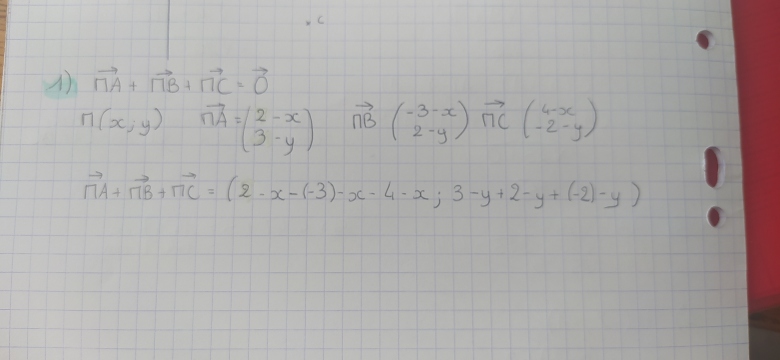 . c
1) ΠA⃗ + ΠB⃗ + ΠC⃗ = 0⃗
Π(x; y) ΠA⃗ = (2 - x / 3 - y) ΠB⃗ (-3 - x / 2 - y) ΠC⃗ (4 - x / -2 - y)
ΠA⃗ + ΠB⃗ + ΠC⃗ = (2 - x - (-3) - x - 4 - x ; 3 - y + 2 - y + (-2) - y )